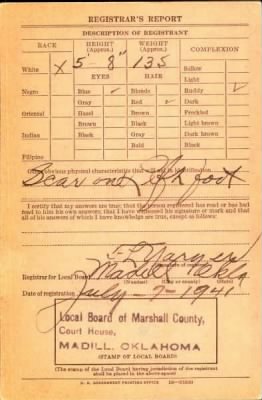 REGISTRAR'S REPORT
DESCRIPTION OF REGISTRANT
RACE HEIGHT (Approx.) WEIGHT (Approx.) COMPLEXION
5' - 8" 135
White X EYES HAIR Sallow
Light
Negro Blue ✓ Blonde Ruddy ✓
Gray Red ✓ Dark
Oriental Hazel Brown Freckled
Brown Black Light brown
Indian Black Gray Dark brown
Bald Black
Filipino
Other obvious physical characteristics that will aid in identification
Scar on Left foot
I certify that my answers are true; that the person registered has read or has had
read to him his own answers; that I have witnessed his signature or mark and that
all of his answers of which I have knowledge are true, except as follows:
Registrar for Local Board Madill Okla
(Number) (City or county) (State)
Date of registration July - 7 - 1941
Local Board of Marshall County,
Court House,
MADILL, OKLAHOMA
(STAMP OF LOCAL BOARD)
(The stamp of the Local Board having jurisdiction of the registrant
shall be placed in the above space)
U. S. GOVERNMENT PRINTING OFFICE